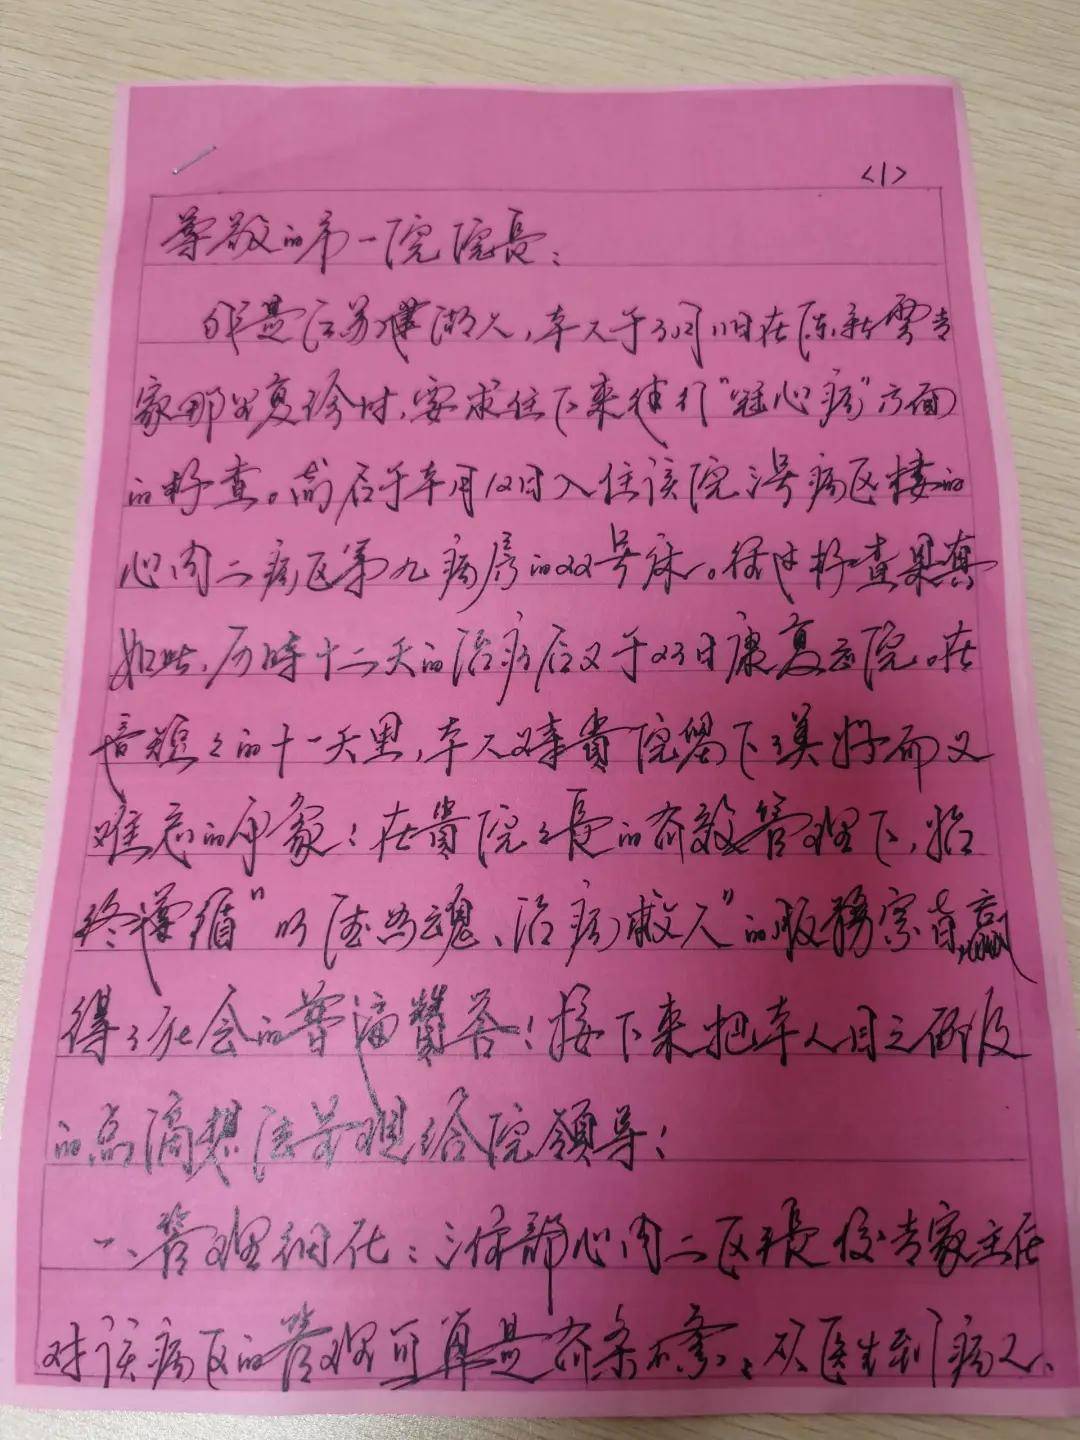 <1>
尊敬的市一院院長：
我是江苏洪湖人，本人于3月11日在陈新云专
家那儿复诊时，要求住下来进行"冠心病"方面
的检查。尔后于本月12日入住该院3号病区楼的
心内二病区第九病房的22号床。经过检查果真
如此，历時十二天的治疗后又于23日康复出院。在
短之的十一天里，本人对貴院留下了美好而又
难忘的印象！在貴院之長的有效管理下，始
终遵循"以德为魂、治病救人"的服務宗旨，赢
得了社会的普遍贊荅！接下来把本人目之所及
的点滴想法呈现给院領导！
一、管理细化：心内二区長 专家主任
对该病区的管理可算是有条不紊，从医生到病人、